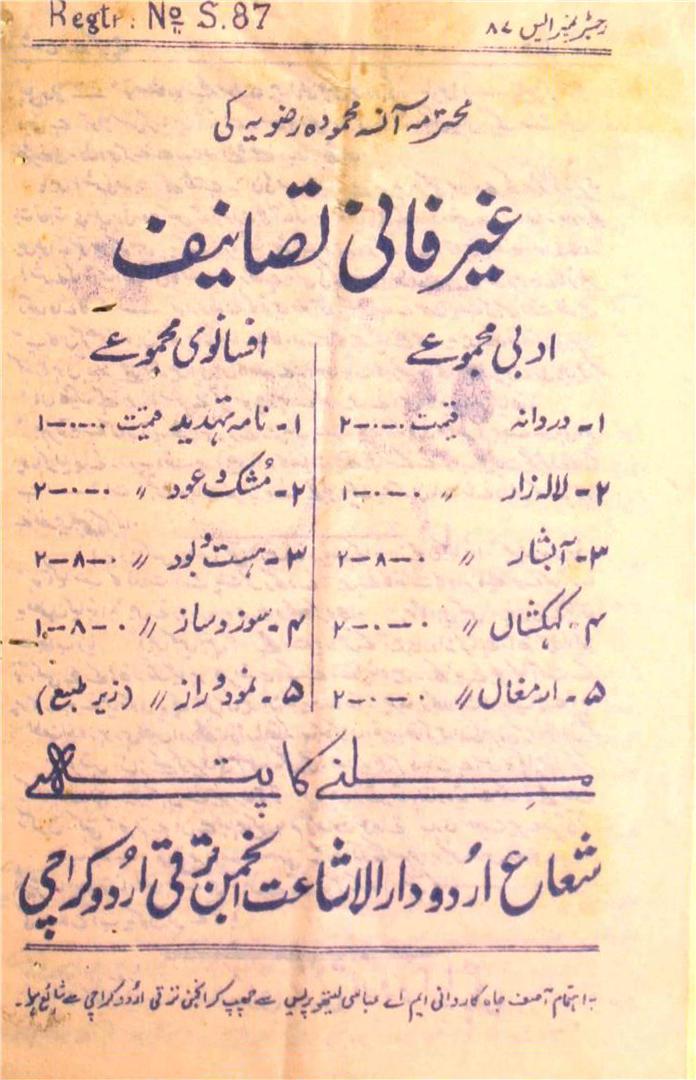 Regtr: No S.87
رجسٹر نمبر ایس ۸۷
محترمہ آنسہ محمودہ رضویہ کی
غیر فانی تصانیف
ادبی مجموعے
۱- دردانہ قیمت ۰-۰-۲
۲- لالہ زار 〃 ۰-۰-۱
۳- آبشار 〃 ۰-۸-۲
۴- کہکشاں 〃 ۰-۰-۲
۵- ارمغان 〃 ۰-۰-۲
افسانوی مجموعے
۱- نامہ تہدید قیمت ۰-۰-۱
۲- مُشک و عود 〃 ۰-۰-۲
۳- ہست و بود 〃 ۰-۸-۲
۴- سوز و ساز 〃 ۰-۸-۱
۵- نمود و راز 〃 (زیر طبع)
مِلنے کا پتہ
شعاع اُردو دارالاشاعت انجمن ترقی اُردو کراچی
بہ اہتمام آصف جاہ کاروانی ایم اے عباسی لیتھو پریس سے چھپ کر انجمن ترقی اُردو کراچی سے شائع ہوا۔